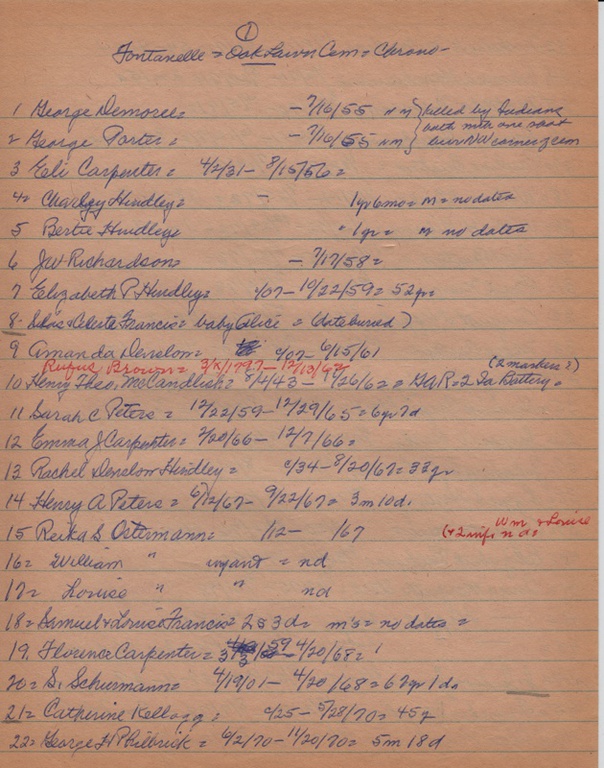 ①
Fontanelle = Oak Lawn Cem = Chrono-
1 George Demoree = - 7/16/55 NM } killed by Indians
2 George Porter = - 7/16/55 NM } both with one shot
bur NW corner of cem
3 Eli Carpenter = 4/2/31 - 8/15/56 =
4 = Hindley = - 1 yr 6 mo = m = no dates
5 Bertie Hindley " 1 yr = m no dates
6 JW Richardson = - 7/17/58 =
7 Elizabeth P Hindley = /07 - 10/22/59 = 52 yr
8 - Silas & Celeste Francis = baby Alice = (date buried)
9 Amanda Denslow = c/07 - 6/15/61
Rufus Brown = 3/x/1797 - 12/13/62 (2 markers?)
10 = Henry Theo. McCandlish = 8/4/43 - 1/26/62 = GAR = 2 Ia Battery =
11 Sarah C Peters = 12/22/59 - 12/29/65 = 6 yr 7 d
12 Emma J Carpenter = 2/20/66 - 12/7/66 =
13 Rachel Denslow Hindley = c/34 - 8/20/67 = 33 yr
14 Henry A Peters = 6/12/67 - 9/22/67 = 3 m 10 d.
15 Reika S Ostermann = /12 - /67 (+ 2 inf. Wm & Louise nd =
16 = William " infant = nd
17 = Louise " " nd
18 = Samuel & Louise Francis = 2 s 3 d = m's = no dates =
19. Florence Carpenter = 3/3/59 - 4/20/68 =
20 = S. Schurmann = 4/19/01 - 4/20/68 = 67 yr 1 da
21 = Catherine Kellogg = c/25 - 5/28/70 = 45 y
22 = George H Philbrick = 6/2/70 - 11/20/70 = 5 m 18 d